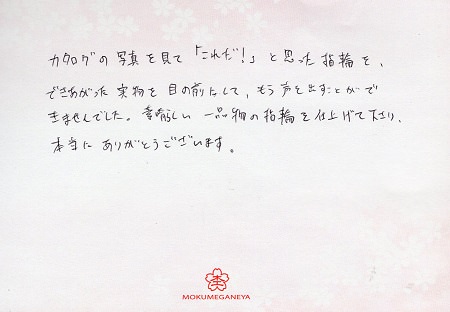 カタログの写真を見て「これだ!」と思った指輪を、
できあがった実物を目の前にして、もう声を出すことがで
きませんでした。素晴らしい一品物の指輪を仕上げて下さり、
本当にありがとうございます。
杢
MOKUMEGANEYA